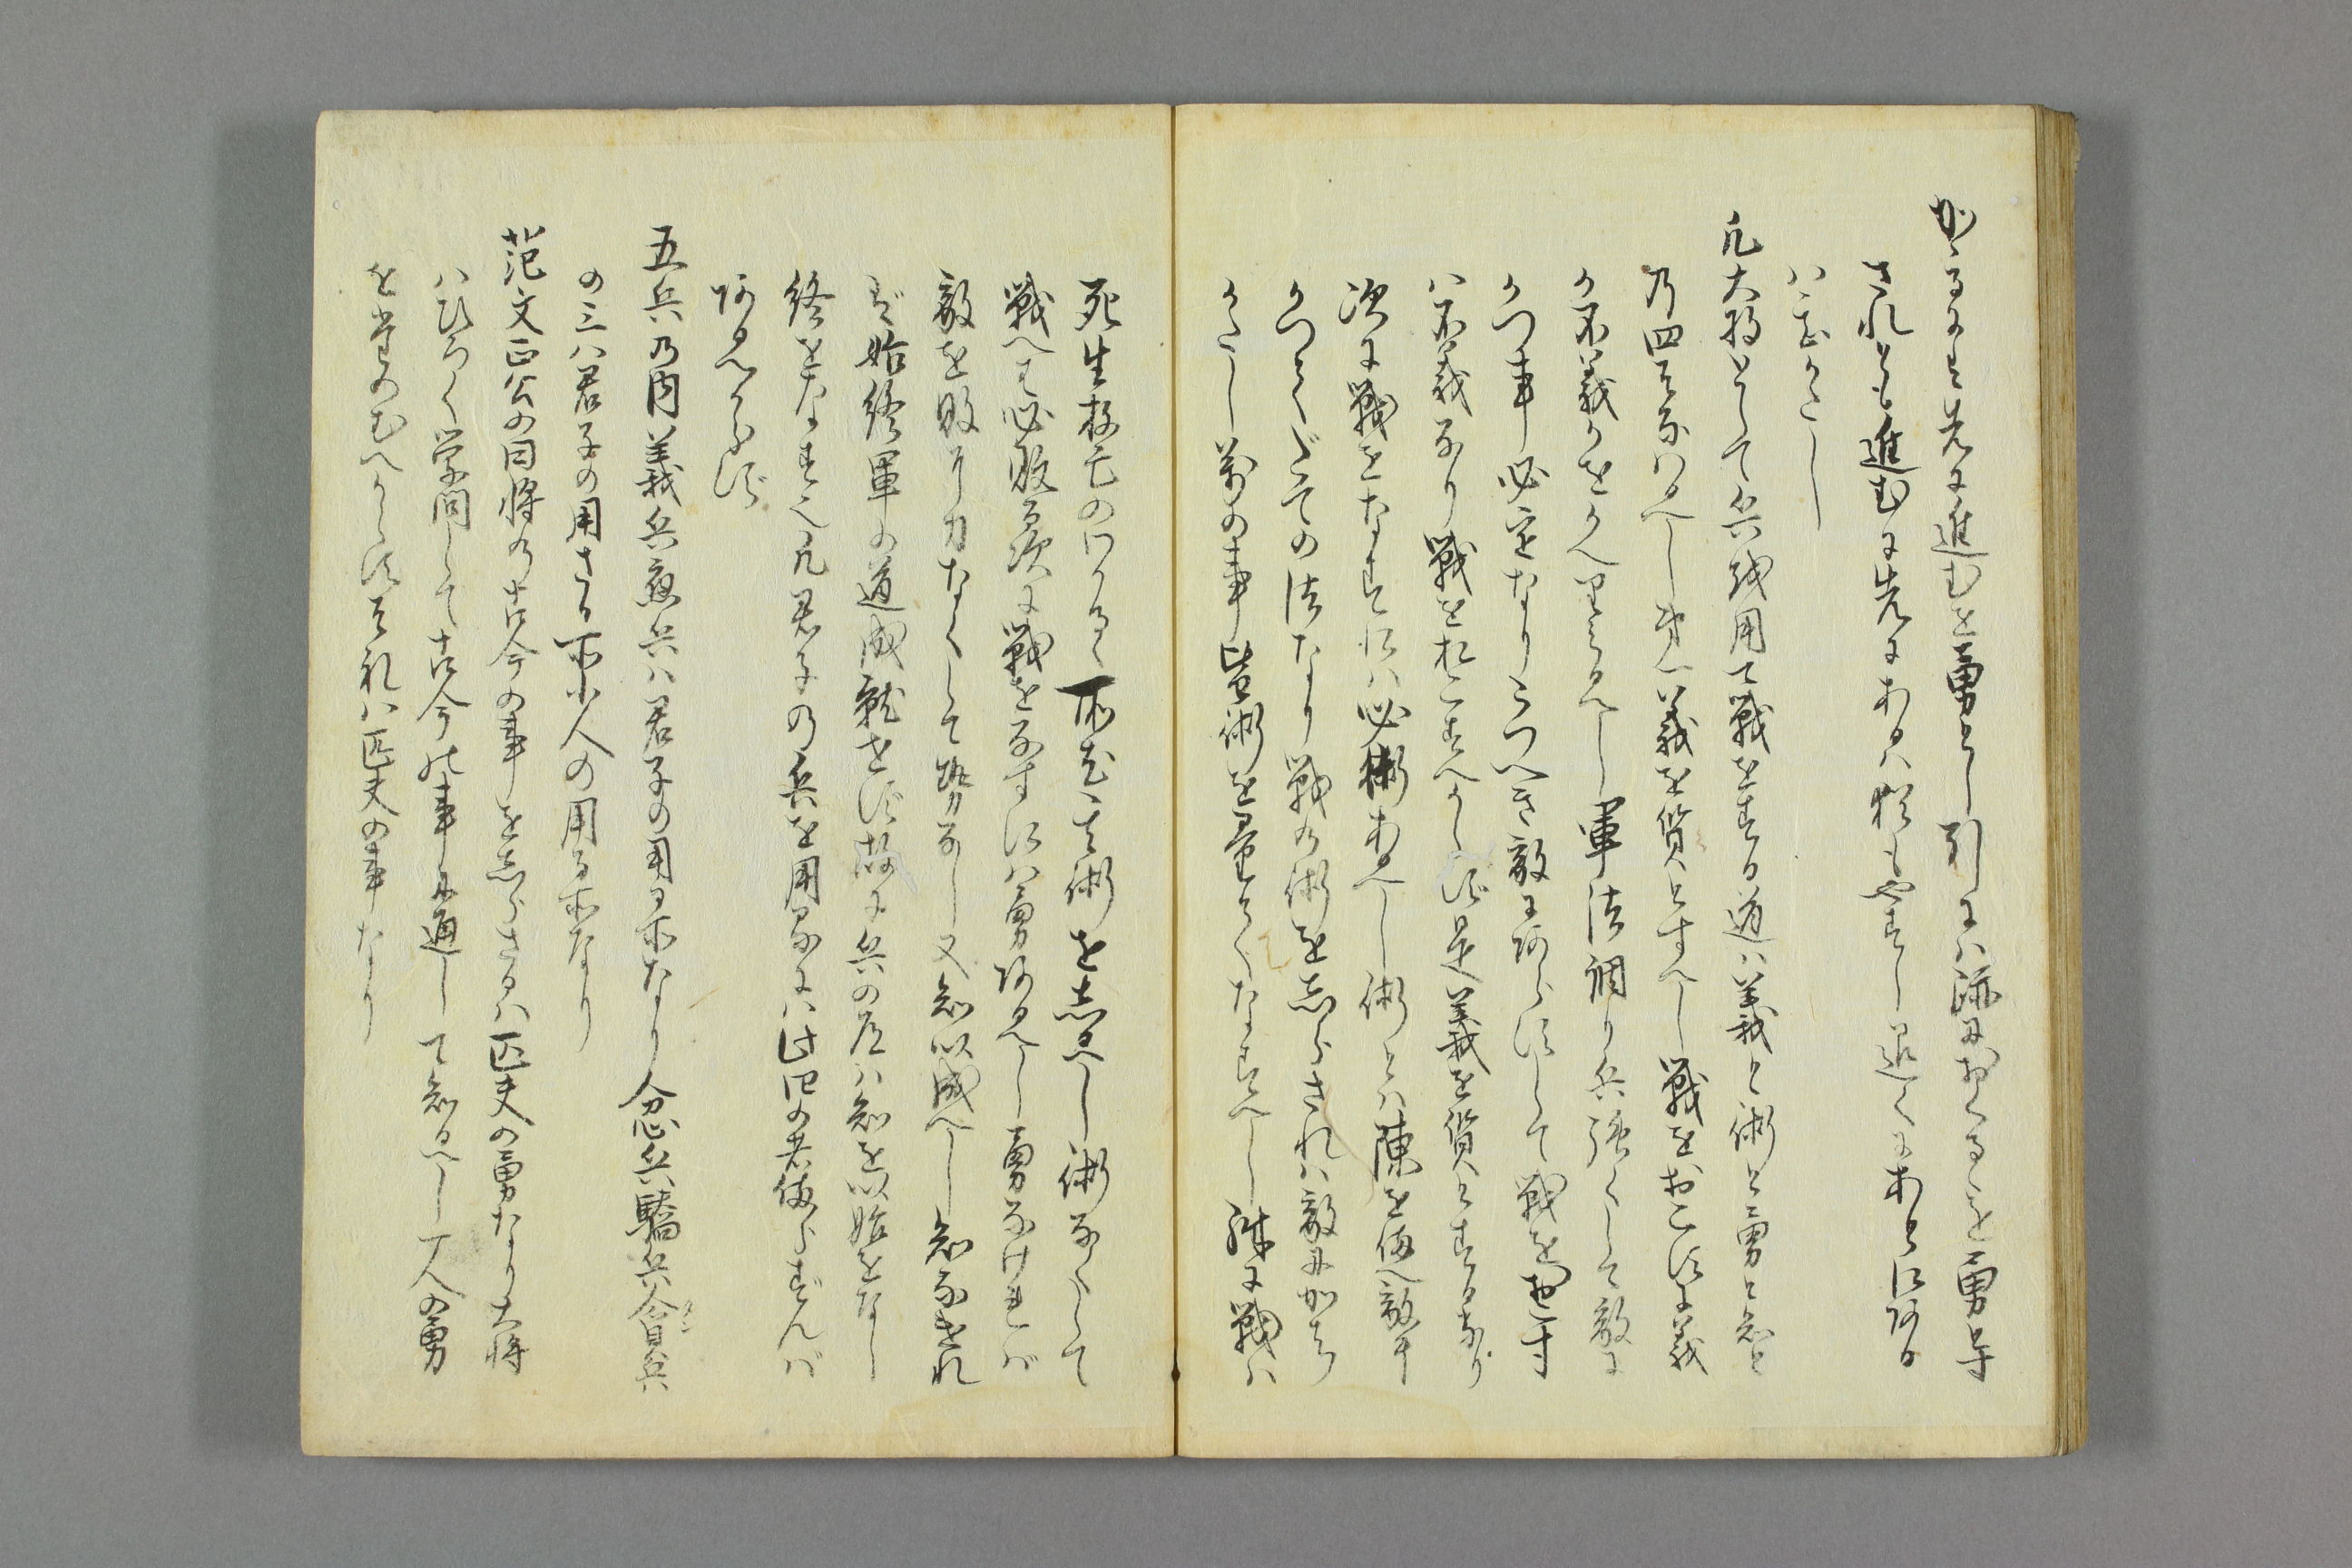 かゝるには先に進むを勇とし引には跡におくるゝを勇とす
されとも進むに先にあるハ猶もやすし退くにあとにある
ハ甚かたし
凡大将として兵を用て戦をする道ハ義と術と勇と知と
乃四そなハるへし第一義を質とすへし戦をおこすに義
か不義かをかへりみるへし軍法調り兵強くして敵に
かつ事必定なりとうつへき敵にあらすして戦をおこす
ハ不義なり戦をおこすへからす是義を質とするなり
次に戦をなすにハ必術あるへし術とハ陳を備へ敵に
かつてだての法なり戦乃術を志らされハ敵にかち
かたし萬の事皆術を量てなすへし殊に戦ハ
死生存亡のわかるゝ所尤其術を志るへし術なくして
戦へは必敗る次に戦をなすにハ勇あるへし勇なけれバ
敵を敗り力なくして勢なし又知以成へし知なされ
ば始終軍の道成就せず故に兵の道ハ知を以始をなし
終をなすへし凡君子の兵を用るにハ此四の者備らずんば
あるへからず
五兵乃内義兵應兵ハ君子の用る所なり忿兵驕兵貪兵
の三ハ君子の用さる所小人の用る所なり
范文正公の曰将乃古今の事を志らさるハ匹夫の勇なり大将
ハひろく学問して古今の事に通して知るへし一人の勇
を このむへからすそれハ匹夫の事なり